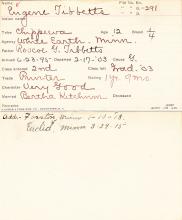 Name Eugene Tibbetts
Tribe Chippewa Age 12 Blood 1/4
Agency White Earth - Minn.
Parent Roscoe G. Tibbetts
Arrived 6-23-95 Departed 2-17-03 Cause G.
Class entered 2nd Class left Grad. '03
Trade Printer Outing 1 yr. 9 mo.
Character Very Good
Married Bertha Ketchum Deceased
Add - Fosston, Minn 1-10-13.
Euclid, Minn 3-24-15